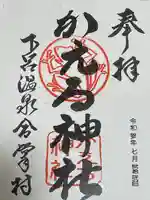 奉拝
令和
年七月
かえる神社
下呂温泉合掌村